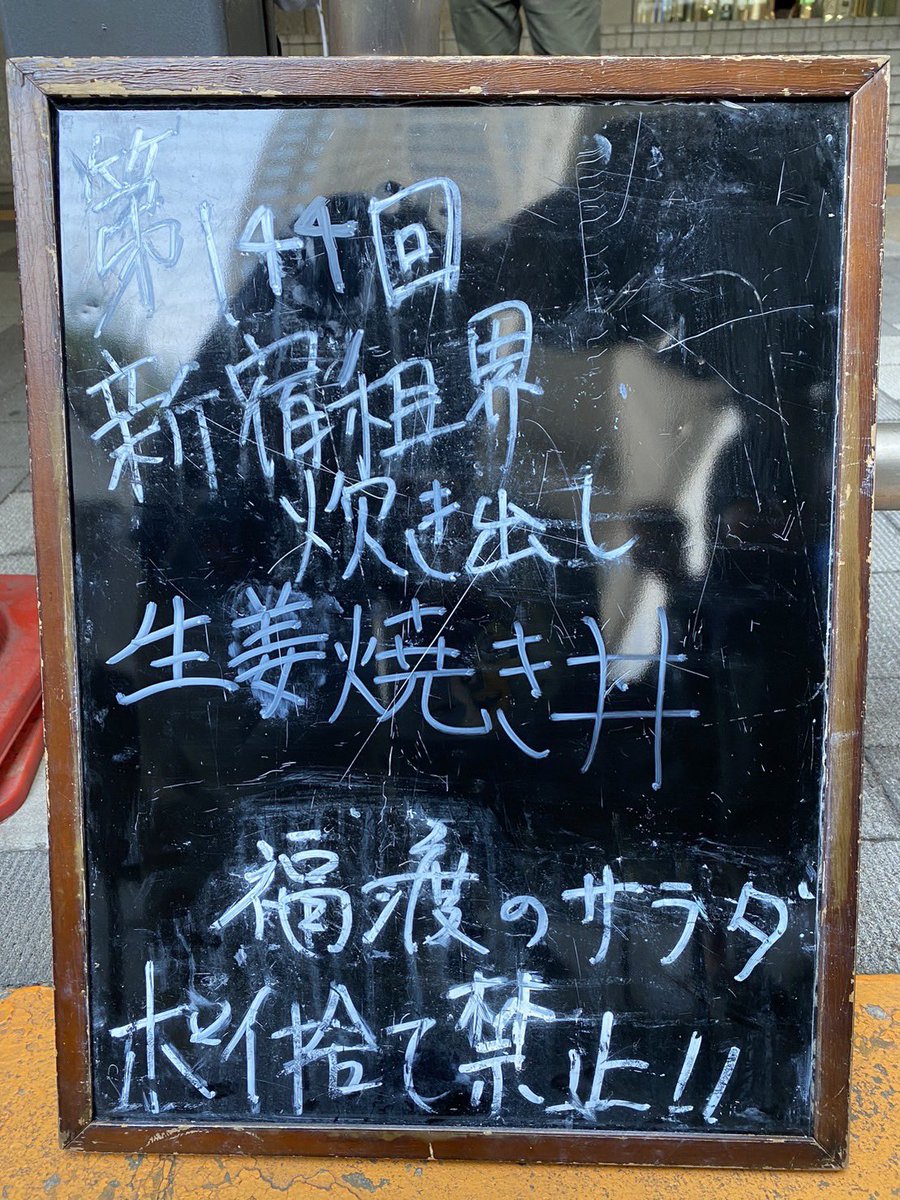 第144回
新宿租界
炊き出し
生姜焼き丼
福渡のサラダ
ポイ捨て禁止!!